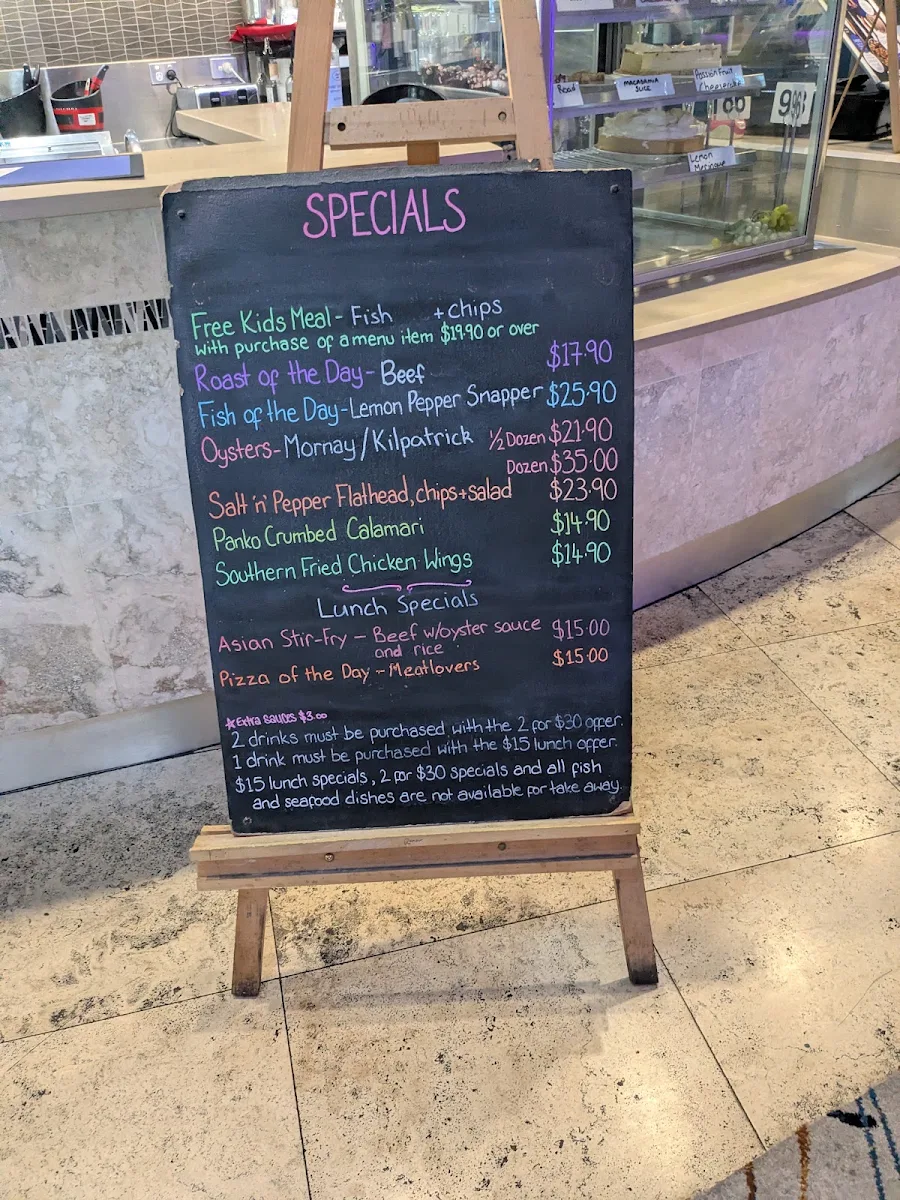 Road
MACADAMIA SLICE
Passionfruit
Lemon Meringue
SPECIALS
Free Kids Meal - Fish + chips
with purchase of a menu item $19.90 or over
Roast of the Day - Beef $17.90
Fish of the Day - Lemon Pepper Snapper $25.90
Oysters - Mornay / Kilpatrick ½ Dozen $21.90
Dozen $35.00
Salt 'n' Pepper Flathead, chips + salad $23.90
Panko Crumbed Calamari $14.90
Southern Fried Chicken Wings $14.90
Lunch Specials
Asian Stir-Fry - Beef w/oyster sauce $15.00
and rice
Pizza of the Day - Meatlovers $15.00
★Extra sauces $3.00
2 drinks must be purchased with the 2 for $30 offer.
1 drink must be purchased with the $15 lunch offer.
$15 lunch specials, 2 for $30 specials and all fish
and seafood dishes are not available for take away.